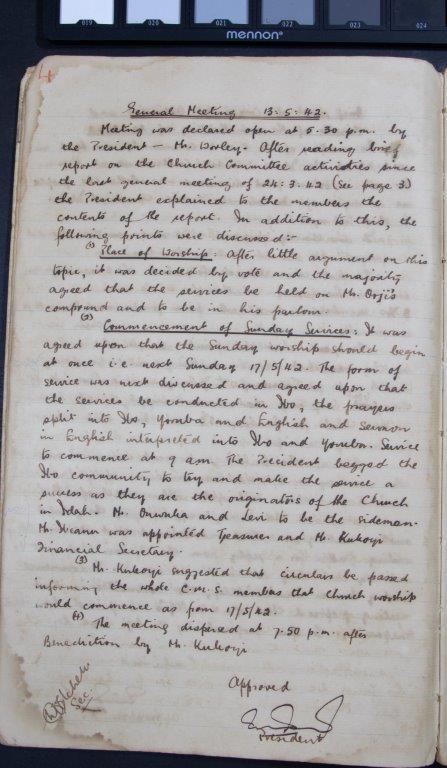 019 020 021 022 023 024
mennon
4
General Meeting 13:5:42.
Meeting was declared open at 5.30 p.m. by
the President – Mr. Worley. After reading brief
report on the Church Committee activities since
the last general meeting of 24:3.42 (See page 3)
the President explained to the members the
contents of the report. In addition to this, the
following points were discussed:-
(1) Place of Worship: After little argument on this
topic, it was decided by vote and the majority
agreed that the services be held on Mr. Orji's
compound and to be in his parlour.
(2) Commencement of Sunday Services: It was
agreed upon that the Sunday worship should begin
at once i.e. next Sunday 17/5/42. The form of
service was next discussed and agreed upon that
the services be conducted in Ibo, the prayers
split into Ibo, Yoruba and English and Sermon
in English interpreted into Ibo and Yoruba. Service
to commence at 9 am. The President begged the
Ibo community to try and make the service a
success as they are the originators of the Church
in Idah. Mr. Onwuka and Levi to be the sideman.
Mr. Nwanu was appointed Treasurer and Mr. Kukoyi
Financial Secretary.
(3) Mr. Kukoyi suggested that circulars be passed
informing the whole C.M.S members that Church worship
would commence as from 17/5/42.
(4) The meeting dispersed at 7.50 p.m. after
Benediction by Mr. Kukoyi
Approved
Sec.
President